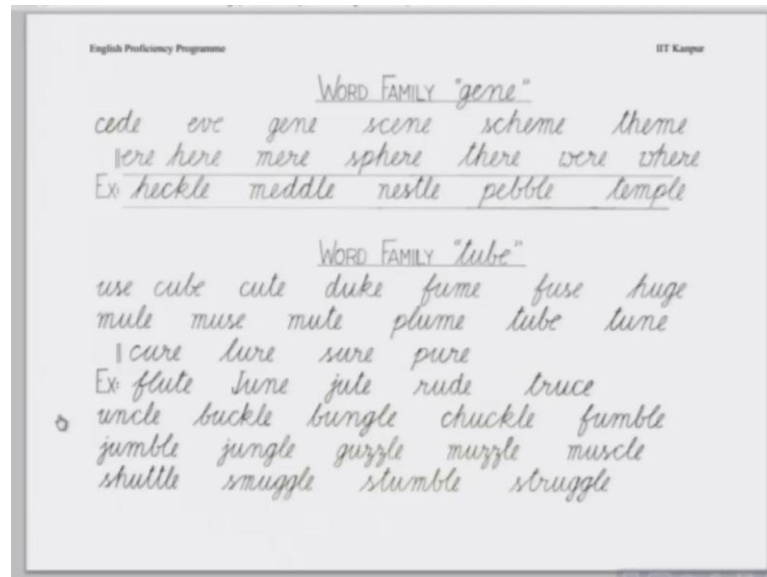 English Proficiency Programme IIT Kanpur
WORD FAMILY "gene"
cede eve gene scene scheme theme
||ere here mere sphere there were where
Ex: heckle meddle nestle pebble temple
WORD FAMILY "tube"
use cube cute duke fume fuse huge
mule muse mute plume tube tune
|| cure lure sure pure
Ex: flute June jute rude truce
uncle buckle bungle chuckle fumble
jumble jungle guzzle muzzle muscle
shuttle smuggle stumble struggle